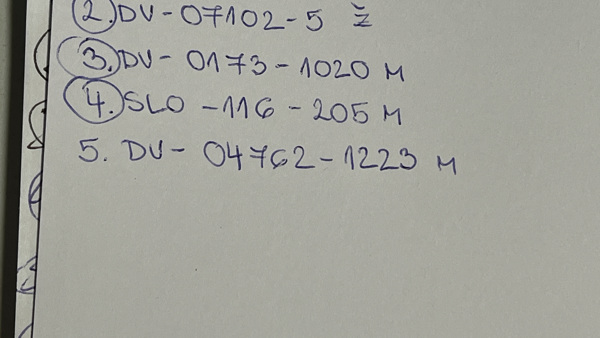 2. DV-07102-5 Ž
3. DV-0173-1020 M
4. SLO-116-205 M
5. DV-04762-1223 M